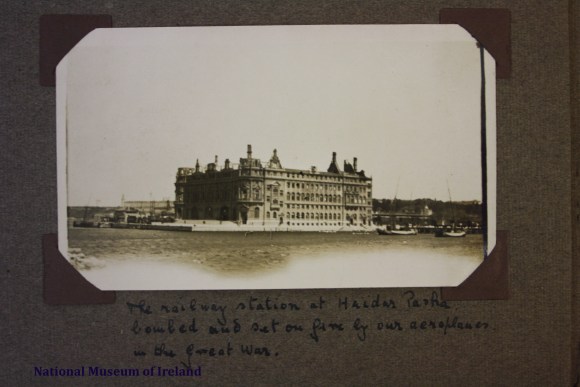 The railway station at Haidar Pasha
bombed and set on fire by our aeroplanes
in the Great War.
National Museum of Ireland